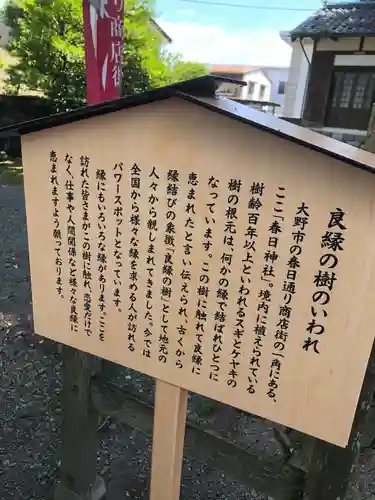 商店街
良縁の樹のいわれ
大野市の春日通り商店街の一角にある、
ここ「春日神社」。境内に植えられている
樹齢百年以上といわれるスギとケヤキの
樹の根元は、何かの縁で結ばれひとつに
なっています。この樹に触れて良縁に
恵まれたと言い伝えられ、古くから
縁結びの象徴「良縁の樹」として地元の
人々から親しまれてきました。今では
全国から様々な縁を求める人が訪れる
パワースポットとなっています。
縁にもいろいろな縁があります。ここを
訪れた皆さまがこの樹に触れ、恋愛だけで
なく、仕事や人間関係など様々な良縁に
恵まれますよう願っております。